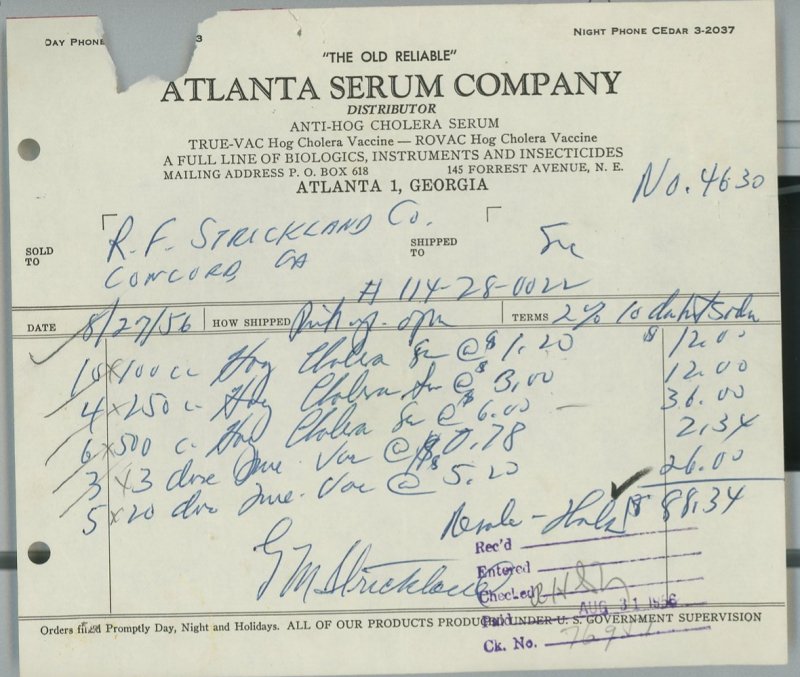 DAY PHONE 3 NIGHT PHONE CEDAR 3-2037
"THE OLD RELIABLE"
ATLANTA SERUM COMPANY
DISTRIBUTOR
ANTI-HOG CHOLERA SERUM
TRUE-VAC Hog Cholera Vaccine — ROVAC Hog Cholera Vaccine
A FULL LINE OF BIOLOGICS, INSTRUMENTS AND INSECTICIDES
MAILING ADDRESS P. O. BOX 618 145 FORREST AVENUE, N. E.
ATLANTA 1, GEORGIA
No. 4630
SOLD TO R. F. STRICKLAND Co. SHIPPED TO
CONCORD, GA
# 114-28-0022
DATE 8/27/56 HOW SHIPPED Pick up. TERMS 2% 10
10 x 100 cc Hog Cholera Se @ $1.20 $ 12.00
4 x 250 c. Hog Cholera Se @ $3.00 12.00
6 x 500 c. Hog Cholera Se @ $6.00 — 36.00
3 x 3 dose True. Vac @ $0.78 2.34
5 x 20 dose True. Vac @ $5.20 26.00
Resale - $ 88.34
G M Strickland
Rec'd
Entered
Checked
Paid AUG 31 1956
Ck. No.
Orders filled Promptly Day, Night and Holidays. ALL OF OUR PRODUCTS PRODUCED UNDER U. S. GOVERNMENT SUPERVISION